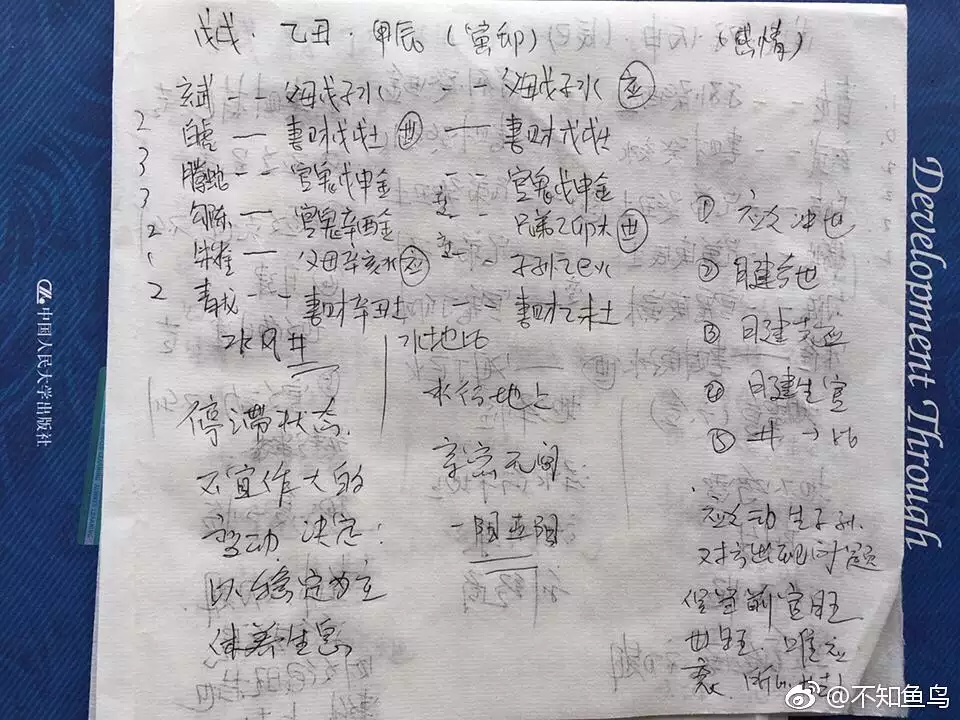 戊戌·乙丑·甲辰（寅卯）（感情）
玄武 -- 父母戊子水 -- 父母戊子水 应
2 白虎 — 妻财戊戌土 世 — 妻财戊戌土
3 腾蛇 -- 官鬼戊申金 -- 官鬼戊申金
3 勾陈 — 官鬼辛酉金 -- 兄弟乙卯木 世
2 朱雀 — 父母辛亥水 应 -- 子孙乙巳火
2 青龙 -- 妻财辛丑土 -- 妻财乙未土
水风井
水地比
停滞状态
不宜作大的
变动 决定：
以稳定为主
休养生息
水行地上
亲密无间
一阳五阴
① 应爻冲世
② 日建合世
③ 日建克应
④ 日建生官
⑤ 井→比
应爻动生子孙
对方出现问题
但当前官旺
世旺 唯应
衰
Development Through
中国人民大学出版社
@不知鱼鸟